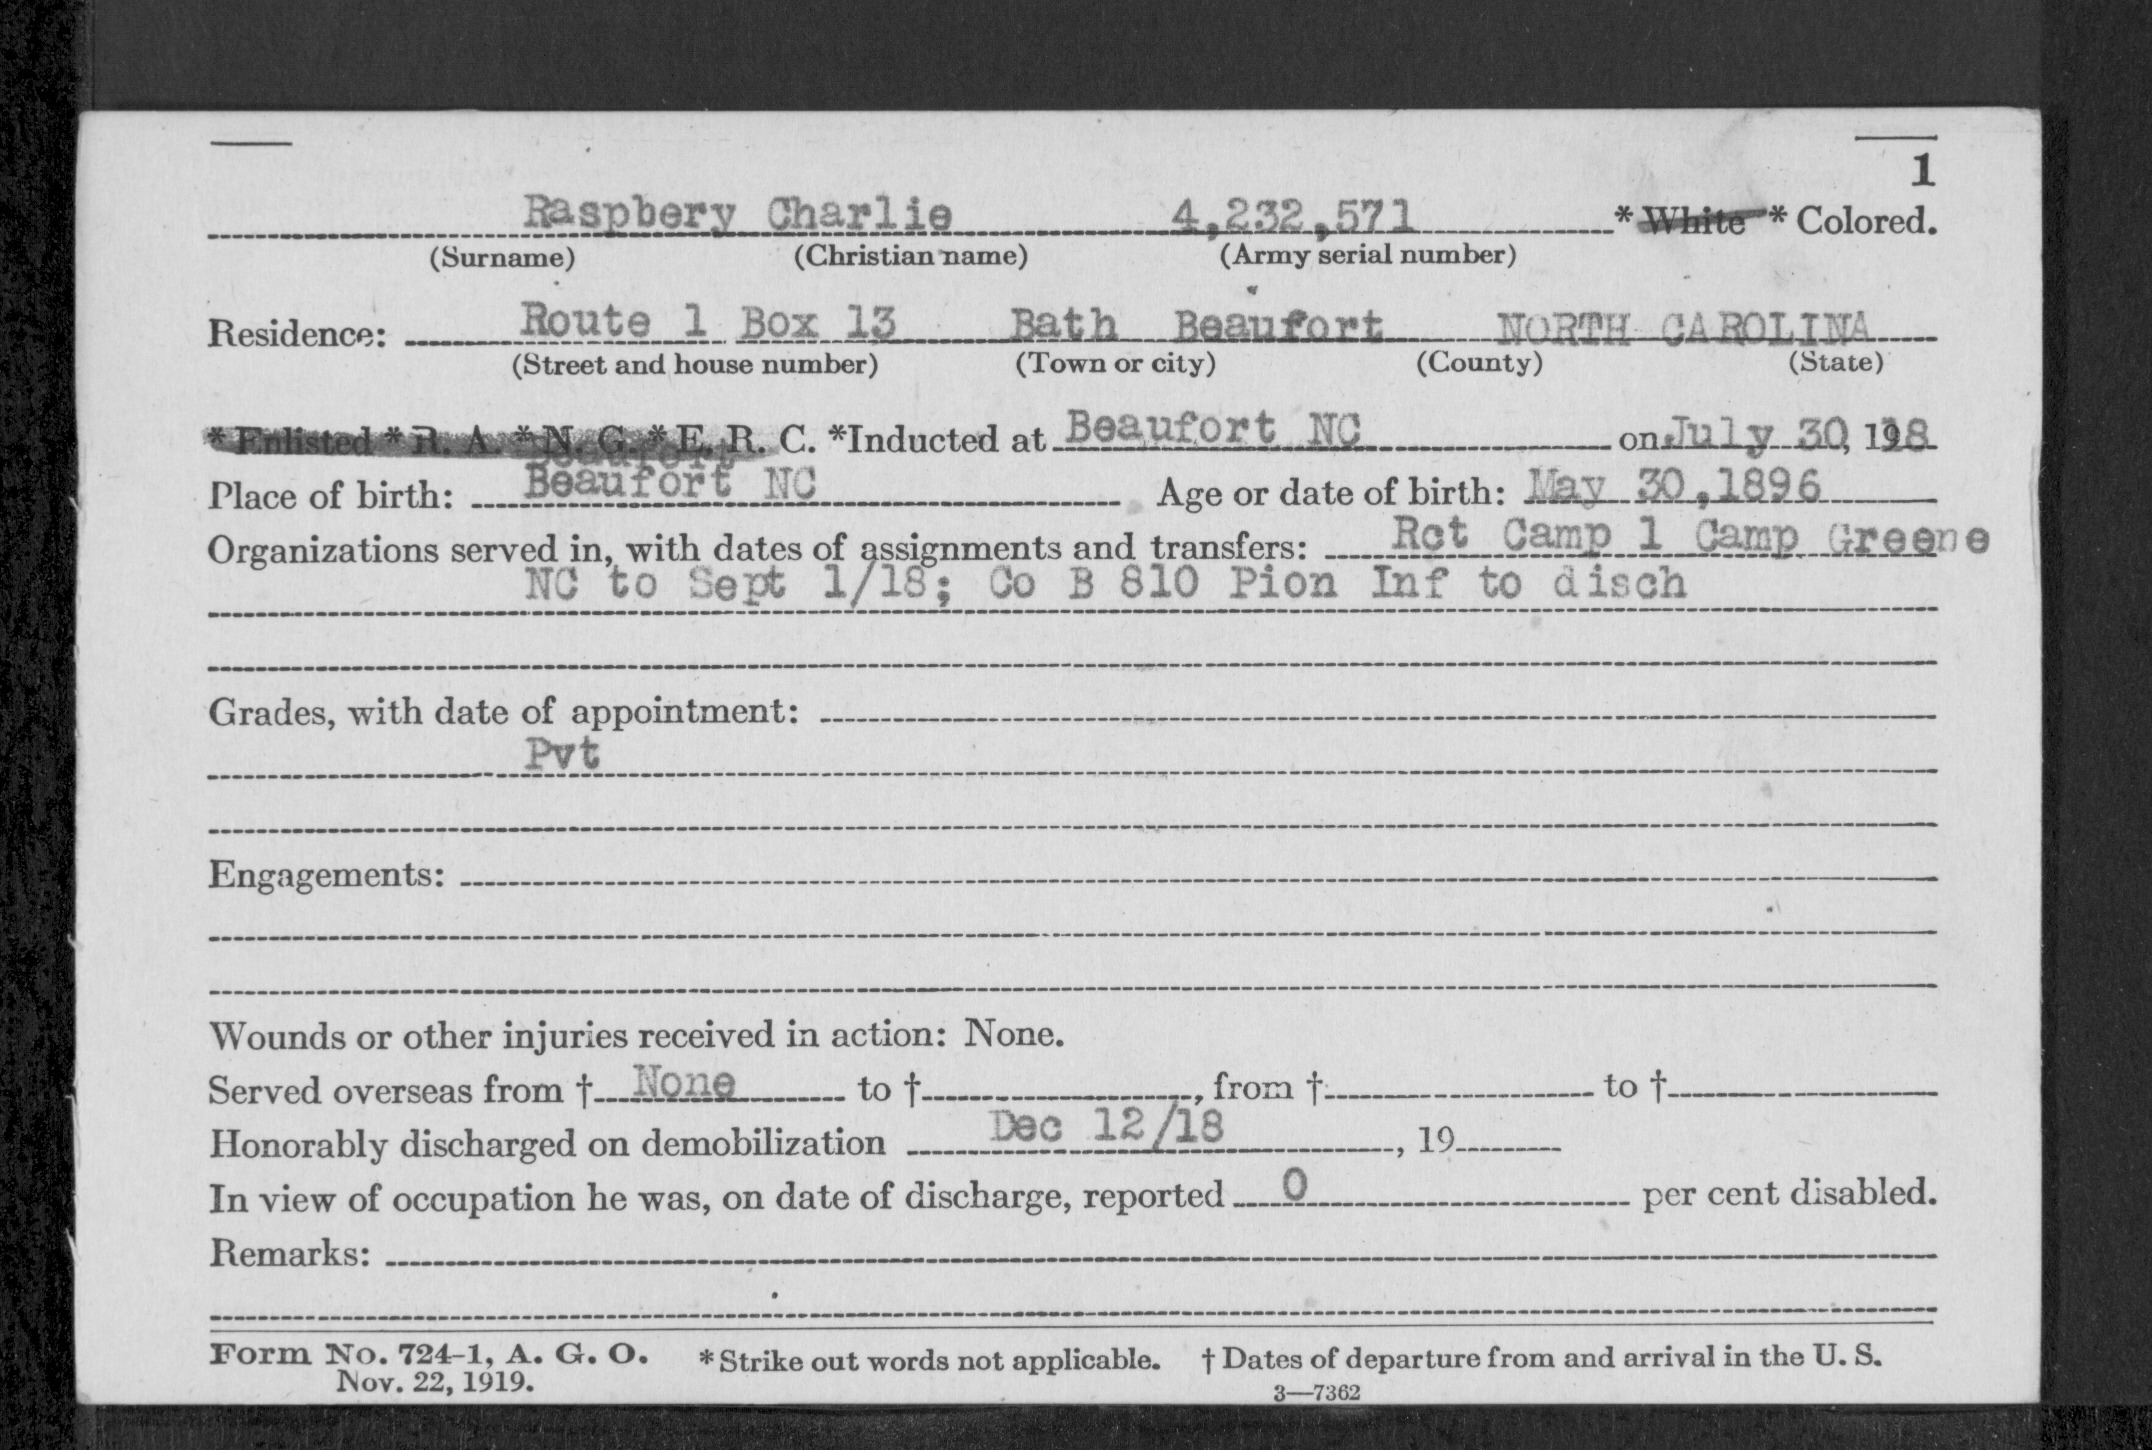 1
Raspbery Charlie 4,232,571 * White * Colored.
(Surname) (Christian name) (Army serial number)
Residence: Route 1 Box 13 Bath Beaufort NORTH CAROLINA
(Street and house number) (Town or city) (County) (State)
* Enlisted * R. A. * N. G. * E. R. C. *Inducted at Beaufort NC on July 30, 1918
Beaufort
Place of birth: Beaufort NC Age or date of birth: May 30,1896
Organizations served in, with dates of assignments and transfers: Rct Camp 1 Camp Greene
NC to Sept 1/18; Co B 810 Pion Inf to disch
Grades, with date of appointment:
Pvt
Engagements:
Wounds or other injuries received in action: None.
Served overseas from † None to †, from † to †
Honorably discharged on demobilization Dec 12/18, 19
In view of occupation he was, on date of discharge, reported 0 per cent disabled.
Remarks:
Form No. 724-1, A. G. O. * Strike out words not applicable. † Dates of departure from and arrival in the U. S.
Nov. 22, 1919. 3—7362